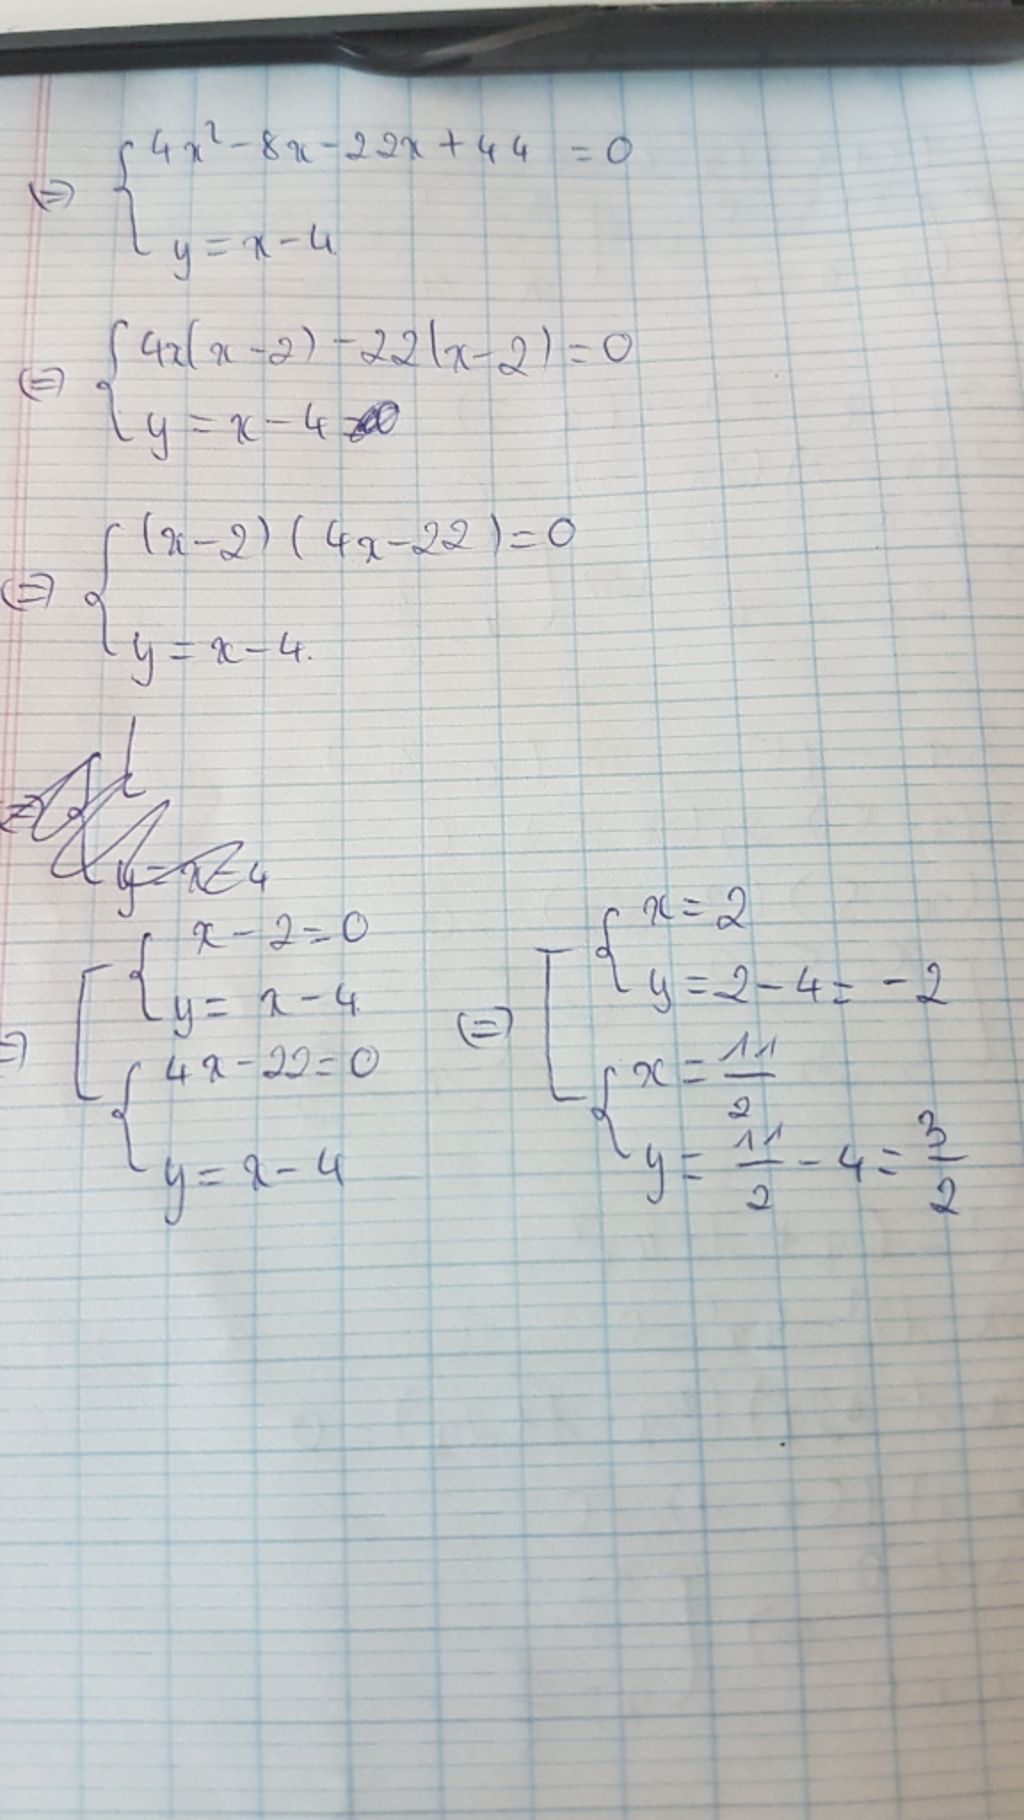 ⇔ { 4x² - 8x - 22x + 44 = 0
y = x - 4
⇔ { 4x(x - 2) - 22(x - 2) = 0
y = x - 4
⇔ { (x - 2)(4x - 22) = 0
y = x - 4.
y = x - 4
⇔ [ { x - 2 = 0
y = x - 4
{ 4x - 22 = 0
y = x - 4
⇔ [ { x = 2
y = 2 - 4 = -2
{ x = 11/2
y = 11/2 - 4 = 3/2